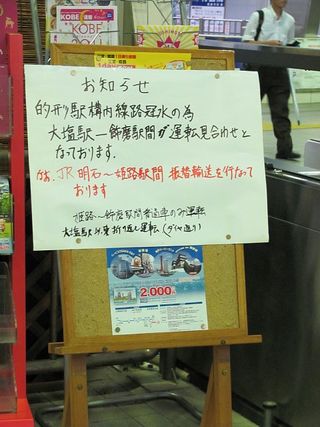 KOBE
お知らせ
的形駅構内線路冠水の為
大塩駅―飾磨駅間が運転見合わせと
なっております.
なお、JR明石～姫路駅間 振替輸送を行なって
おります
姫路～飾磨駅間普通車のみ運転
大塩駅以東折り返し運転(ダイヤ通り)
2,000円